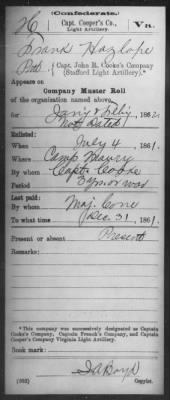 (Confederate.)
H Capt. Cooper's Co., Va.
Light Artillery.
Frank Hazlope
Pvt. Capt. John R. Cooke's Company
(Stafford Light Artillery).*
Appears on
Company Muster Roll
of the organization named above,
for Jan'y & Feb'y, 1862.
Not Dated
Enlisted:
When July 4, 1861.
Where Camp Maury
By whom Capt. Cooke
Period 3 yrs or war
Last paid:
By whom Maj. Cone
To what time Dec. 31, 1861.
Present or absent Present
Remarks:
*This company was successively designated as Captain
Cooke's Company, Captain French's Company, and Captain
Cooper's Company Virginia Light Artillery.
Book mark:
Copyist.